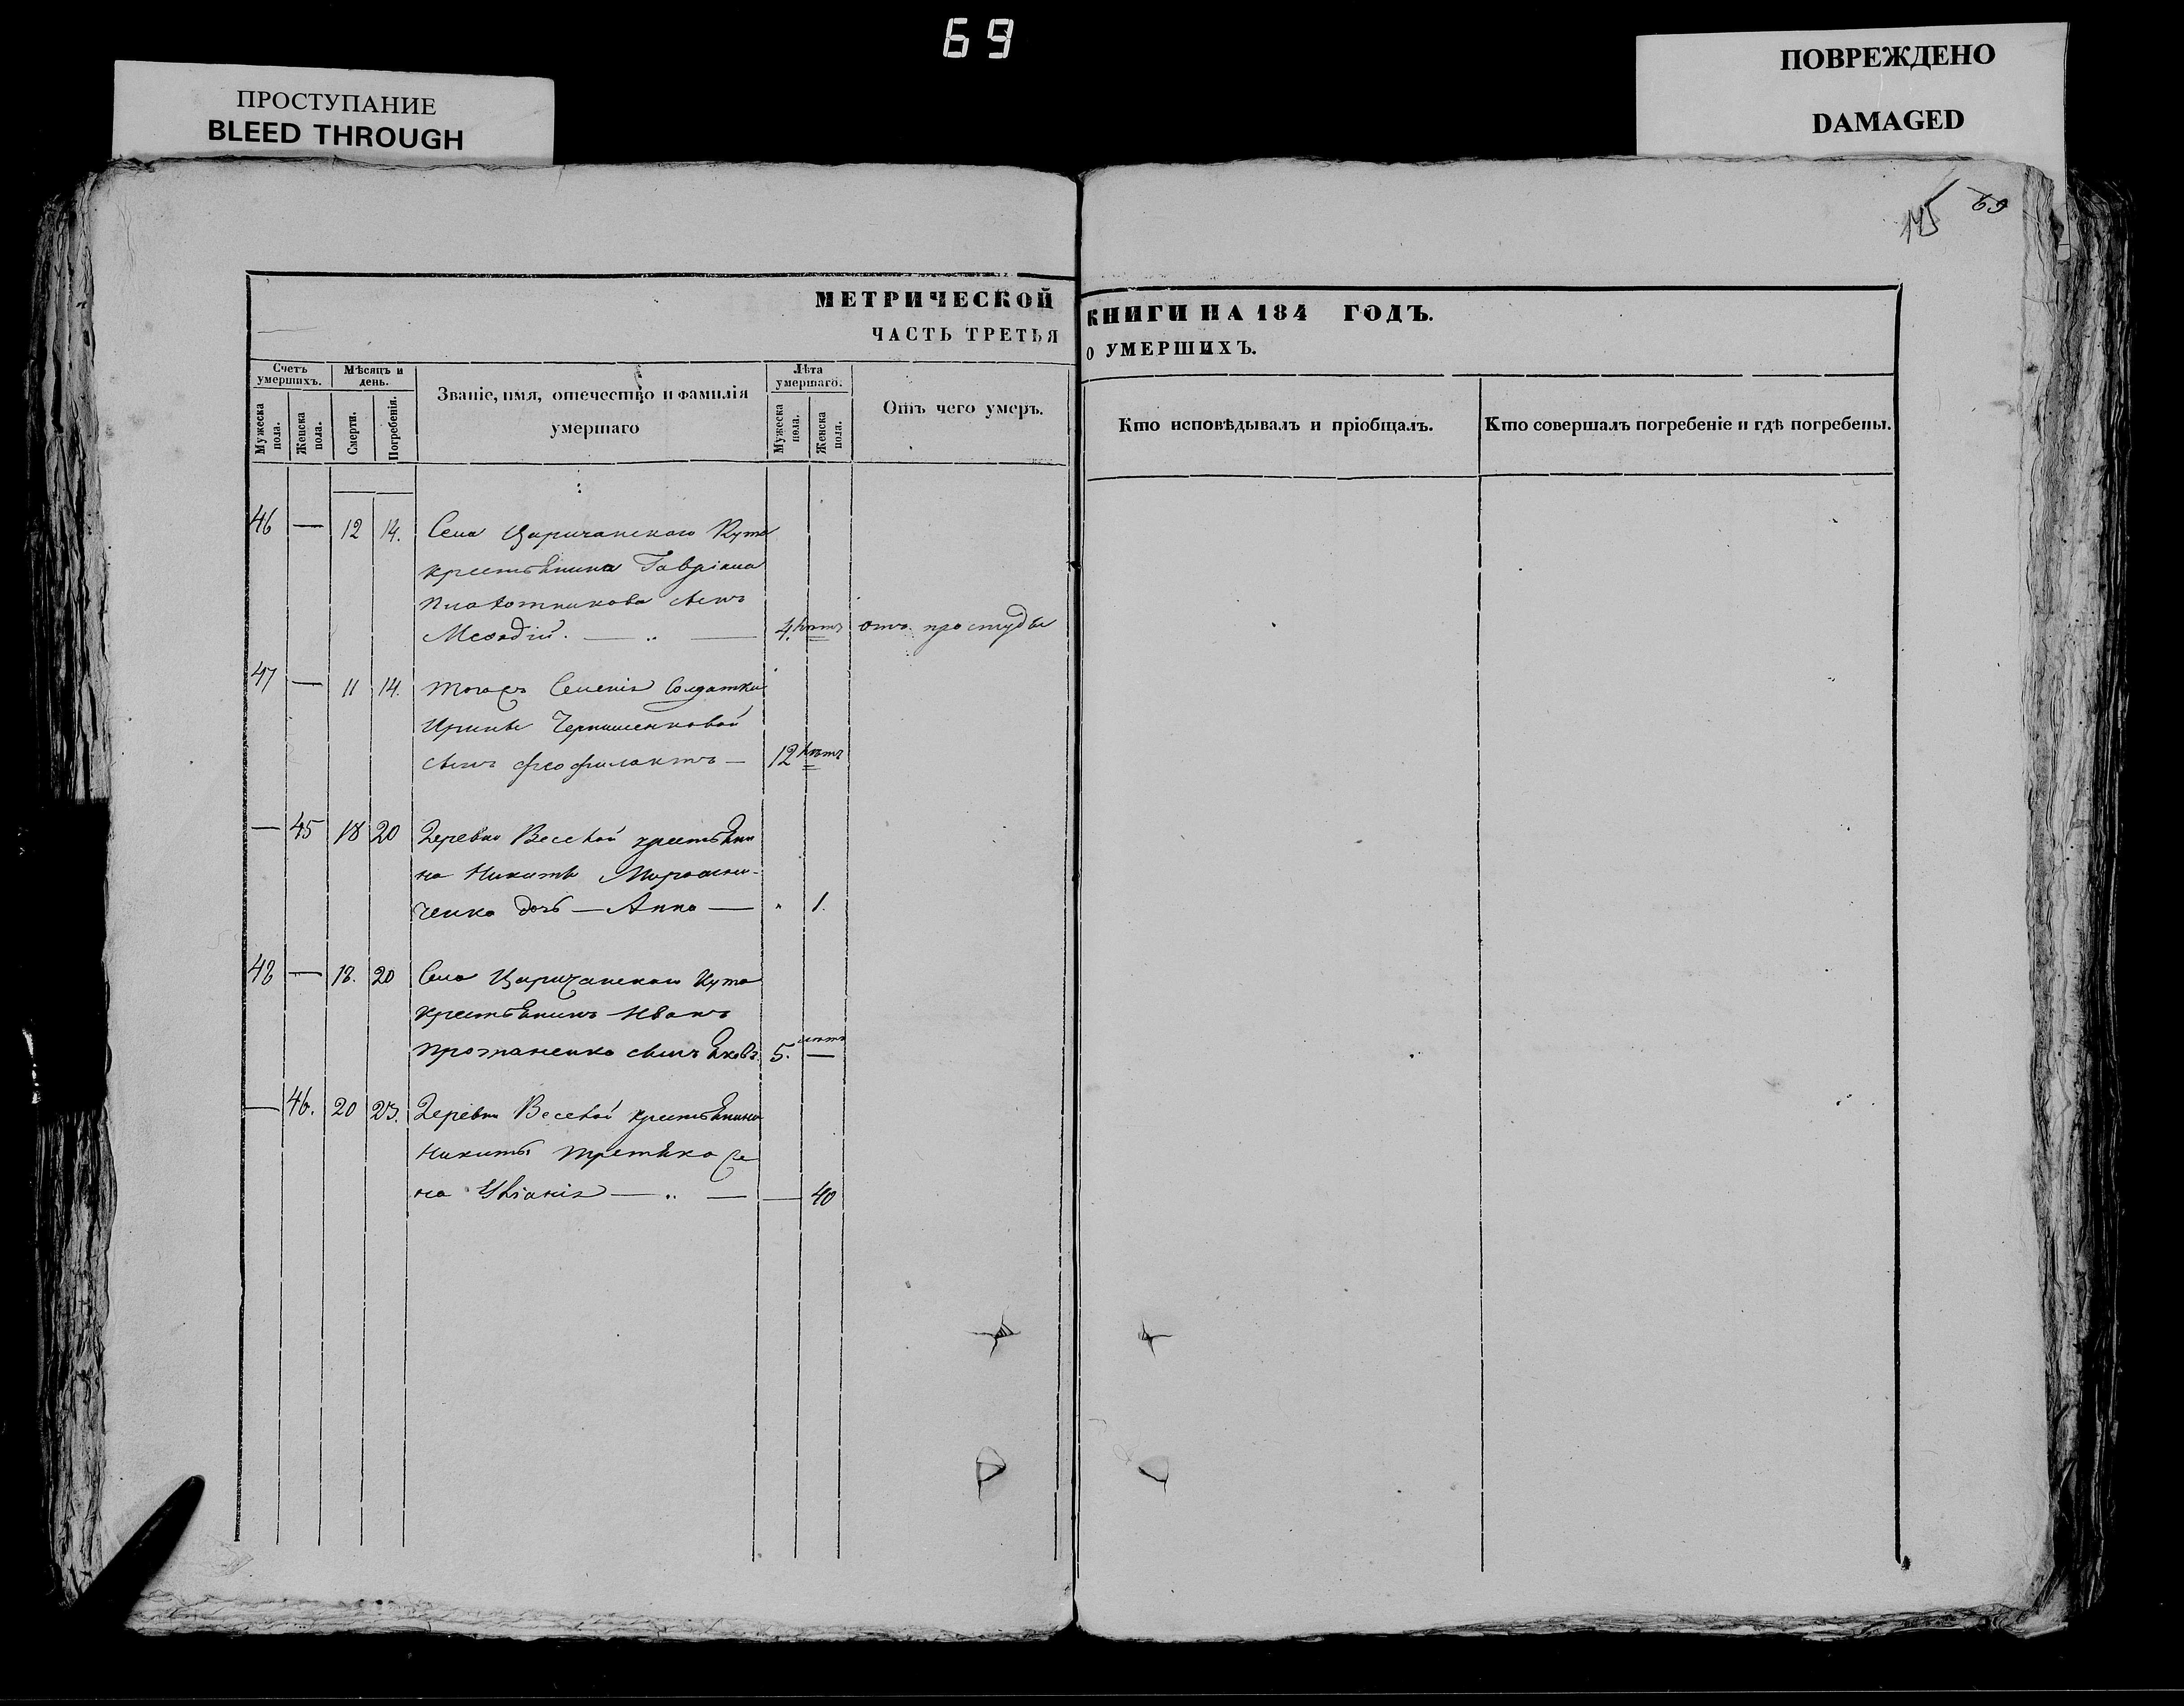 69
ПРОСТУПАНИЕ
BLEED THROUGH
ПОВРЕЖДЕНО
DAMAGED
145 69
МЕТРИЧЕСКОЙ КНИГИ НА 184 ГОДЪ.
ЧАСТЬ ТРЕТЬЯ О УМЕРШИХЪ.
Счетъ умершихъ.
Мужеска пола.
Женска пола.
Мѣсяцъ и день.
Смерти.
Погребенія.
Званіе, имя, отечество и фамилія
умершаго
Лѣта умершаго.
Мужеска пола.
Женска пола.
Отъ чего умеръ.
Кто исповѣдывалъ и пріобщалъ.
Кто совершалъ погребеніе и гдѣ погребены.
46 — 12 14. Села Царичанскаго Кута
крестьянина Гавріила
Плотникова сынъ
Меѳодій. — „ — 4. лѣтъ отъ простуды
47 — 11 14. тогожъ Селенія Солдатки
Ирины
сынъ Феофилактъ — 12 лѣтъ
— 45 18 20 Деревни Веселой крестьяни
на Никиты Мирошни-
ченка дочь — Анна — „ 1.
48 — 18. 20 Села Царичанскаго Кута
крестьянинъ Иванъ
сынъ Яковъ. 5. лѣтъ —
— 46. 20 23. Деревни Веселой крестьянина
Никиты Третяка же
на Уліанія — „ — — 40